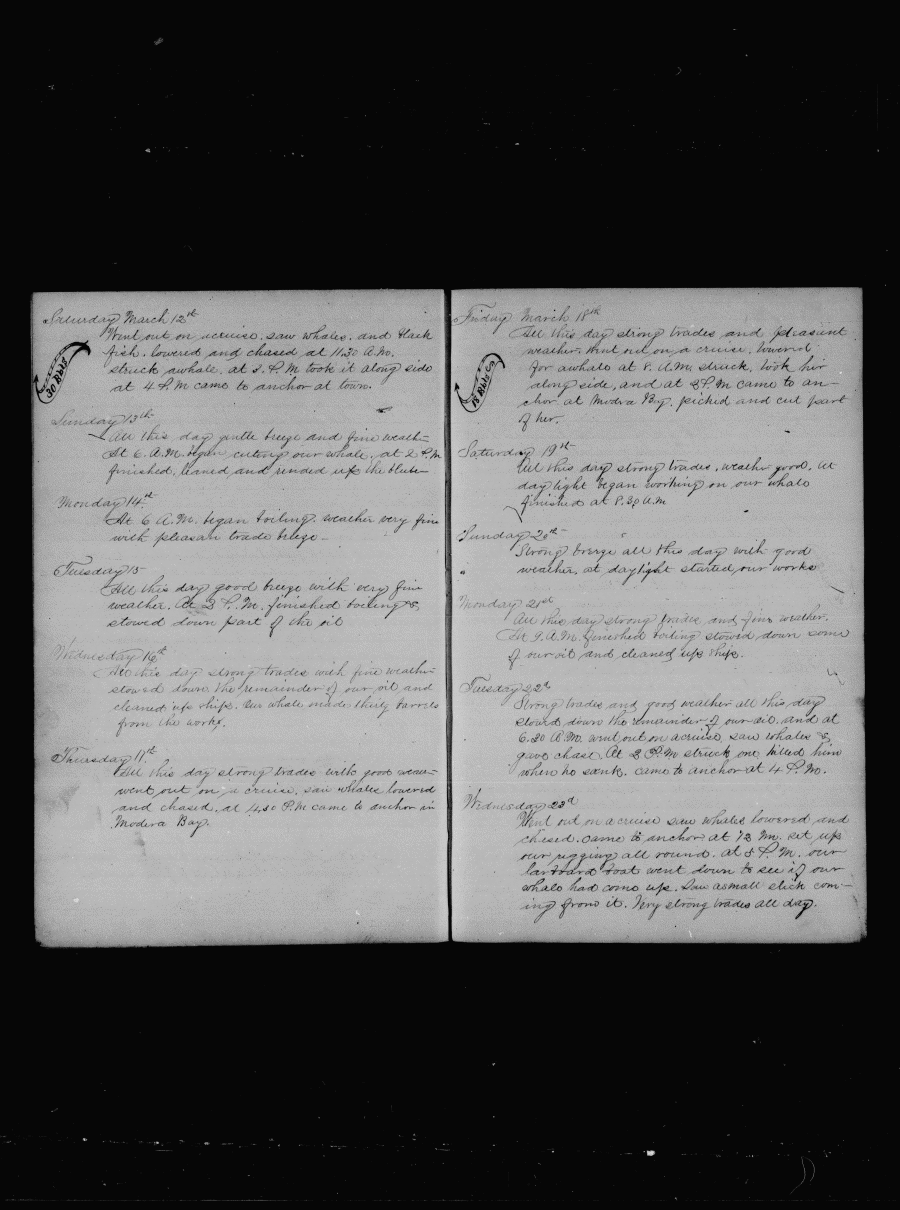 Saturday March 12th
Went out on acruise. saw whales. and black
fish. lowered and chased at 11.30 A.M.
struck awhale. at 3. P.M took it along side
at 4 P.M came to anchor at town.
30 Bbls
Sunday 13th
All this day gentle breeze and fine weath-
At 6. A.M. began cutting our whale. at 2 P.M
finished. leaned and minded up the blub-
Monday 14th
At 6 A.M. began boiling. weather very fine
with pleasan trade breeze-
Tuesday 15
All this day good breeze with very fine
weather. At 3 P.M. finished boiling &
stowed down part of the oil
Wednesday 16th
All this day strong trades with fine weather
stowed down the remainder of our oil and
cleaned up ship. our whale made thirty barrels
from the works.
Thursday 17th
All this day strong trades with good weat-
went out on a cruise. saw whales lowered
and chased. at 4.30 P.M came to anchor in
Modera Bay.
Friday March 18th
All this day strong trades and pleasant
weather. Went out on a cruise. lowered
for awhale at 8. A.M. struck. took her
along side, and at 3 P.M came to an-
chor at Modera Bay. picked and cut part
of her.
18 Bbls
Saturday 19th
All this day strong trades. weather good. At
day light began working on our whale
finished at 8.30 A.M
Sunday 20th
Strong breeze all this day with good
weather. at daylight started our works
Monday 21st
All this day strong trades and fine weather.
At 9. A.M. finished boiling stowed down some
of our oil and cleaned up ship.
Tuesday 22th
Strong trades and good weather all this day
stowed down the remainder of our oil. and at
6.30 A.M. went out on acruise saw whales &
gave chase. At 2 P.M struck one killed him
when he sunk. came to anchor at 4 P.M.
Wednesday 23d
Went out on a cruise saw whales lowered and
chased. came to anchor at 12 M. set up
our rigging all round. at 5 P.M. our
larboard boat went down to see if our
whale had come up. Saw asmall slick com-
ing from it. Very strong trades all day.